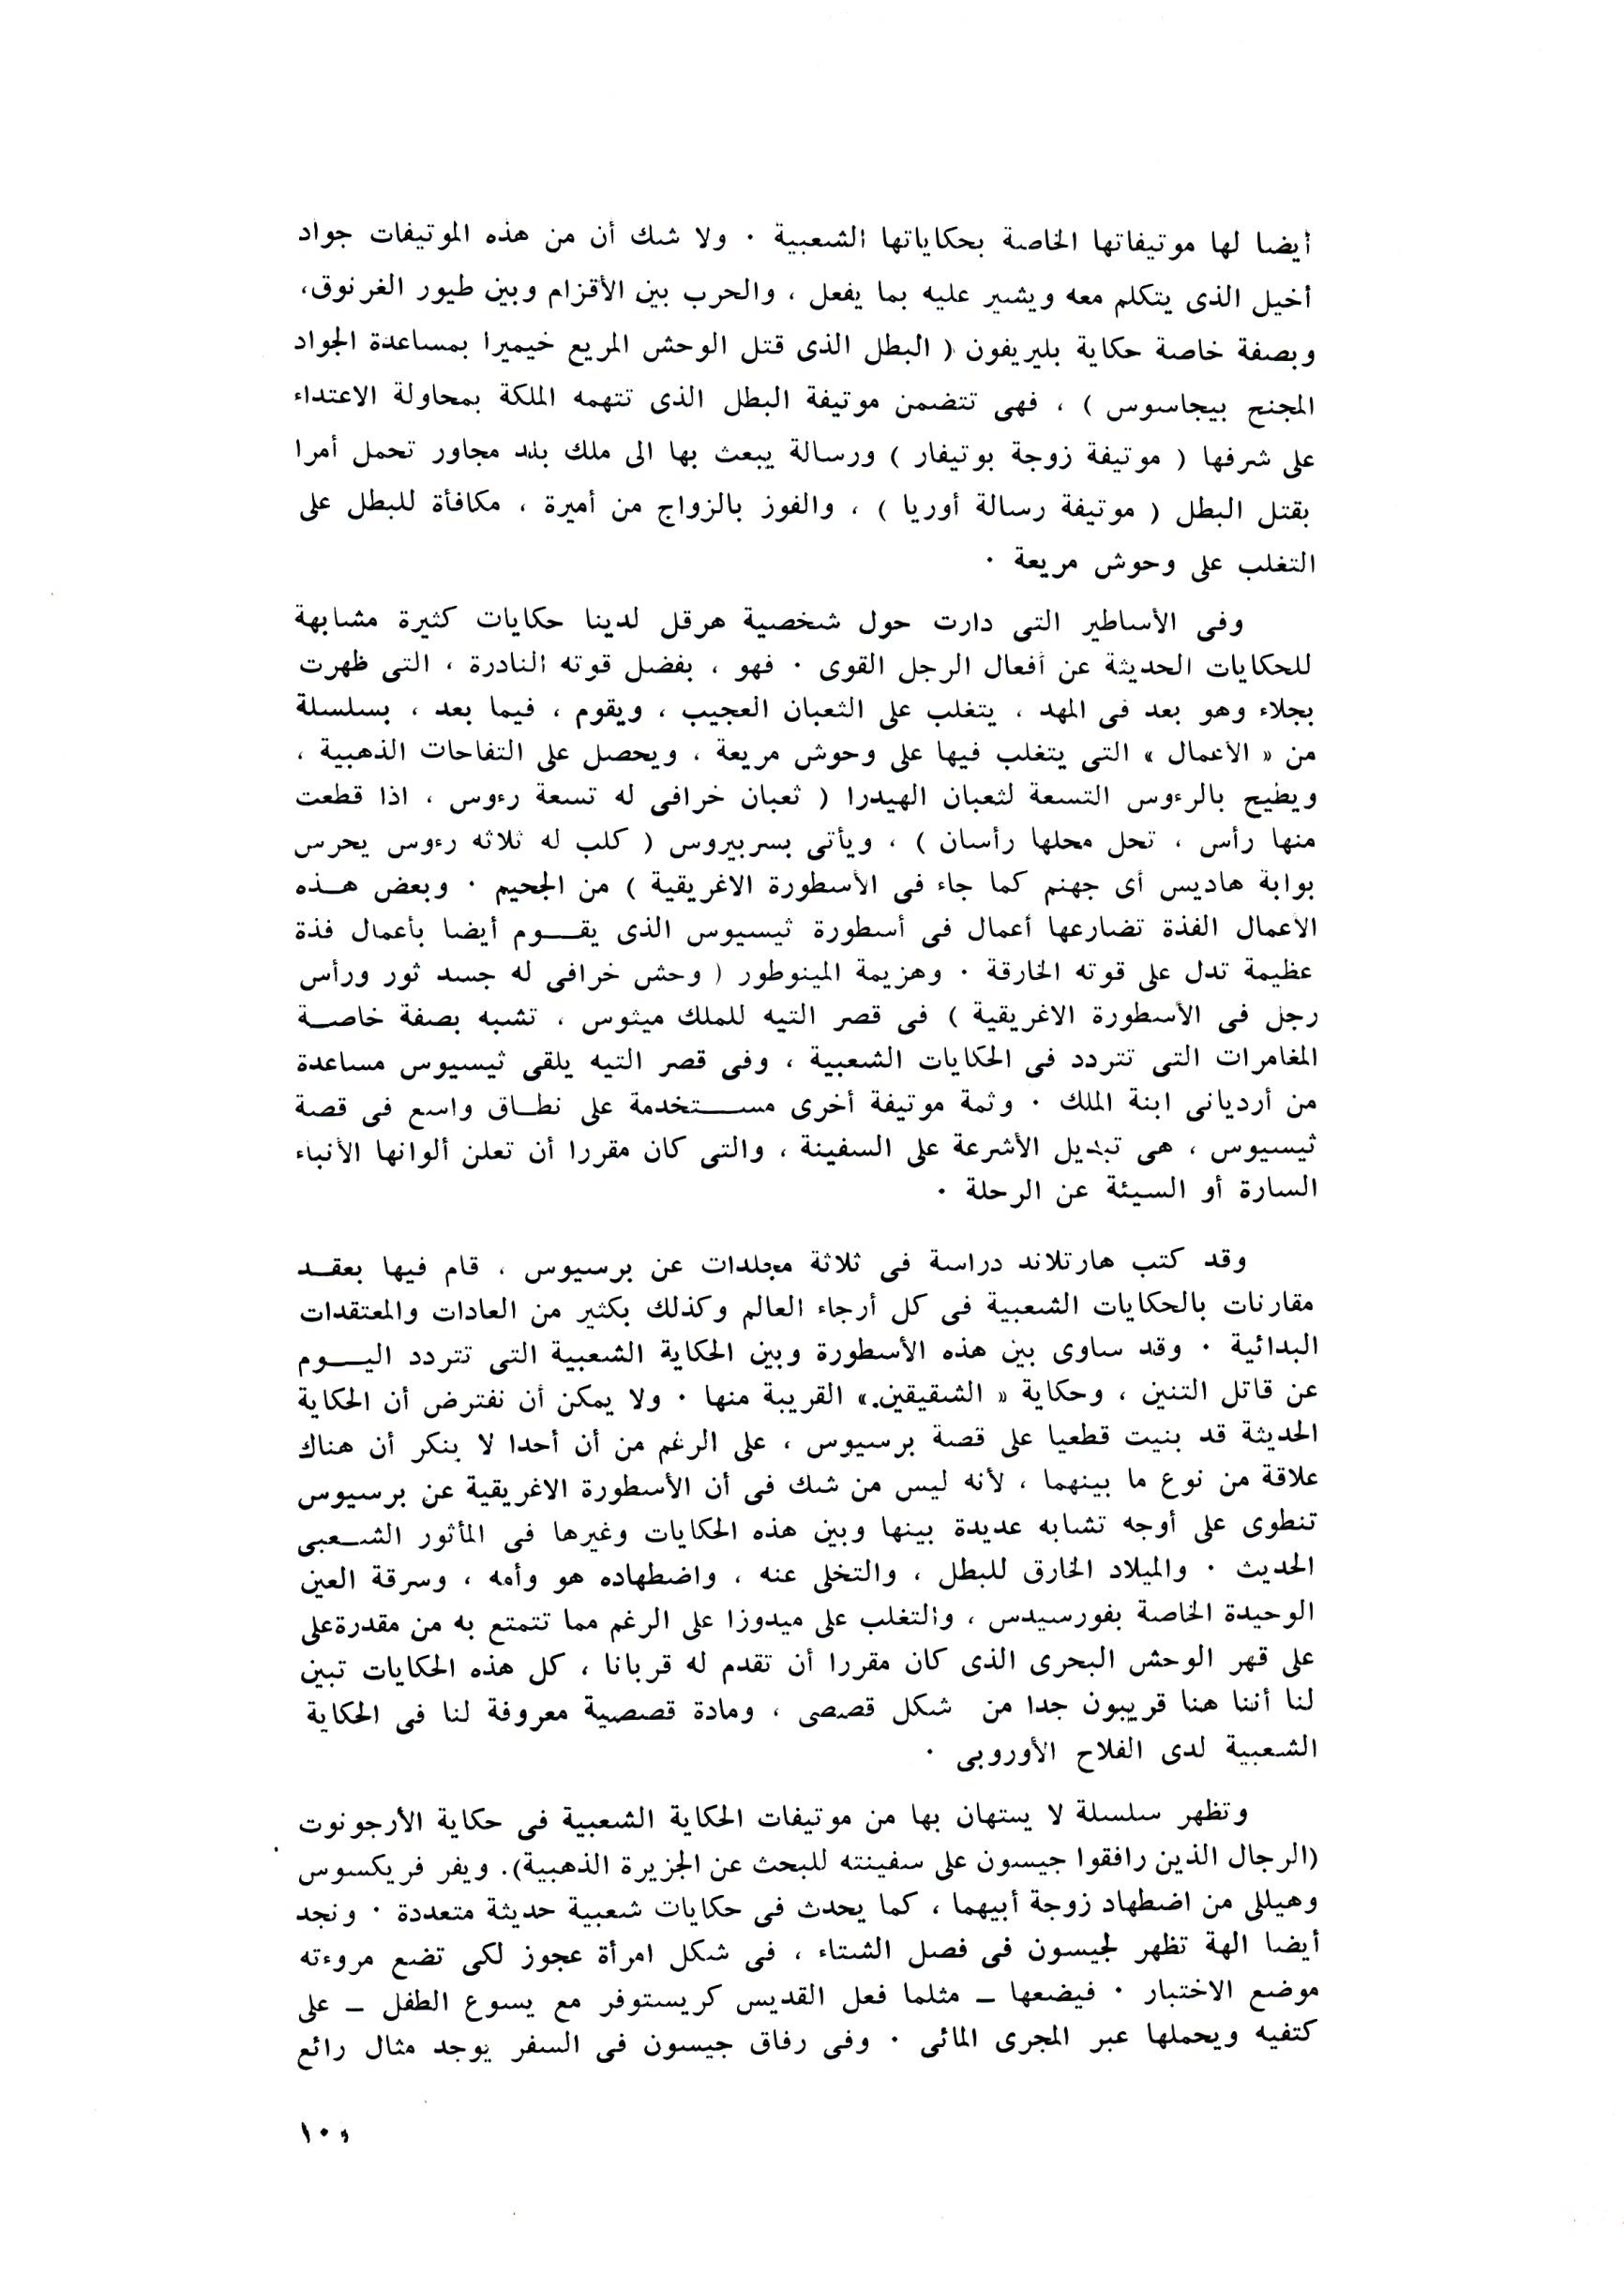 أيضا لها موتيفاتها الخاصة بحكاياتها الشعبية ٠ ولا شك أن من هذه الموتيفات جواد
أخيل الذى يتكلم معه ويشير عليه بما يفعل ، والحرب بين الأقزام وبين طيور الغرنوق،
وبصفة خاصة حكاية بليريفون ( البطل الذى قتل الوحش المريع خيميرا بمساعدة الجواد
المجنح بيجاسوس ) ، فهى تتضمن موتيفة البطل الذى تتهمه الملكة بمحاولة الاعتداء
على شرفها ( موتيفة زوجة بوتيفار ) ورسالة يبعث بها الى ملك بلد مجاور تحمل أمرا
بقتل البطل ( موتيفة رسالة أوريا ) ، والفوز بالزواج من أميرة ، مكافأة للبطل على
التغلب على وحوش مريعة ٠
وفى الأساطير التى دارت حول شخصية هرقل لدينا حكايات كثيرة مشابهة
للحكايات الحديثة عن أفعال الرجل القوى ٠ فهو ، بفضل قوته النادرة ، التى ظهرت
بجلاء وهو بعد فى المهد ، يتغلب على الثعبان العجيب ، ويقوم ، فيما بعد ، بسلسلة
من « الأعمال » التى يتغلب فيها على وحوش مريعة ، ويحصل على التفاحات الذهبية ،
ويطيح بالرءوس التسعة لثعبان الهيدرا ( ثعبان خرافى له تسعة رءوس ، اذا قطعت
منها رأس ، تحل محلها رأسان ) ، ويأتى بسربيروس ( كلب له ثلاثه رءوس يحرس
بوابة هاديس أى جهنم كما جاء فى الأسطورة الاغريقية ) من الجحيم ٠ وبعض هـذه
الأعمال الفذة تضارعها أعمال فى أسطورة ثيسيوس الذى يقـوم أيضا بأعمال فذة
عظيمة تدل على قوته الخارقة ٠ وهزيمة المينوطور ( وحش خرافى له جسد ثور ورأس
رجل فى الأسطورة الاغريقية ) فى قصر التيه للملك ميثوس ، تشبه بصفة خاصـة
المغامرات التى تتردد فى الحكايات الشعبية ، وفى قصر التيه يلقى ثيسيوس مساعدة
من أرديانى ابنة الملك ٠ وثمة موتيفة أخرى مسـتخدمة على نطـاق واسع فى قصة
ثيسيوس ، هى تبديل الأشرعة على السفينة ، والتى كان مقررا أن تعلن ألوانها الأنباء
السارة أو السيئة عن الرحلة ٠
وقد كتب هارتلاند دراسة فى ثلاثة مجلدات عن برسيوس ، قام فيها بعقـد
مقارنات بالحكايات الشعبية فى كل أرجاء العالم وكذلك بكثير من العادات والمعتقدات
البدائية ٠ وقد ساوى بين هذه الأسطورة وبين الحكاية الشعبية التى تتردد اليـوم
عن قاتل التنين ، وحكاية « الشقيقين » القريبة منها ٠ ولا يمكن أن نفترض أن الحكاية
الحديثة قد بنيت قطعيا على قصة برسيوس ، على الرغم من أن أحدا لا ينكر أن هناك
علاقة من نوع ما بينهما ، لأنه ليس من شك فى أن الأسطورة الاغريقية عن برسيوس
تنطوى على أوجه تشابه عديدة بينها وبين هذه الحكايات وغيرها فى المأثور الشـعبى
الحديث ٠ والميلاد الخارق للبطل ، والتخلى عنه ، واضطهاده هو وأمه ، وسرقة العين
الوحيدة الخاصة بفورسيدس ، والتغلب على ميدوزا على الرغم مما تتمتع به من مقدرةعلى
على قهر الوحش البحرى الذى كان مقررا أن تقدم له قربانا ، كل هذه الحكايات تبين
لنا أننا هنا قريبون جدا من شكل قصصى ، ومادة قصصية معروفة لنا فى الحكاية
الشعبية لدى الفلاح الأوروبى ٠
وتظهر سلسلة لا يستهان بها من موتيفات الحكاية الشعبية فى حكاية الأرجونوت
(الرجال الذين رافقوا جيسون على سفينته للبحث عن الجزيرة الذهبية). ويفر فريكسوس
وهيللى من اضطهاد زوجة أبيهما ، كما يحدث فى حكايات شعبية حديثة متعددة ٠ ونجد
أيضا الهة تظهر لجيسون فى فصل الشتاء ، فى شكل امرأة عجوز لكى تضع مروءته
موضع الاختبار ٠ فيضعها ـ مثلما فعل القديس كريستوفر مع يسوع الطفل ـ على
كتفيه ويحملها عبر المجرى المائى ٠ وفى رفاق جيسون فى السفر يوجد مثال رائع